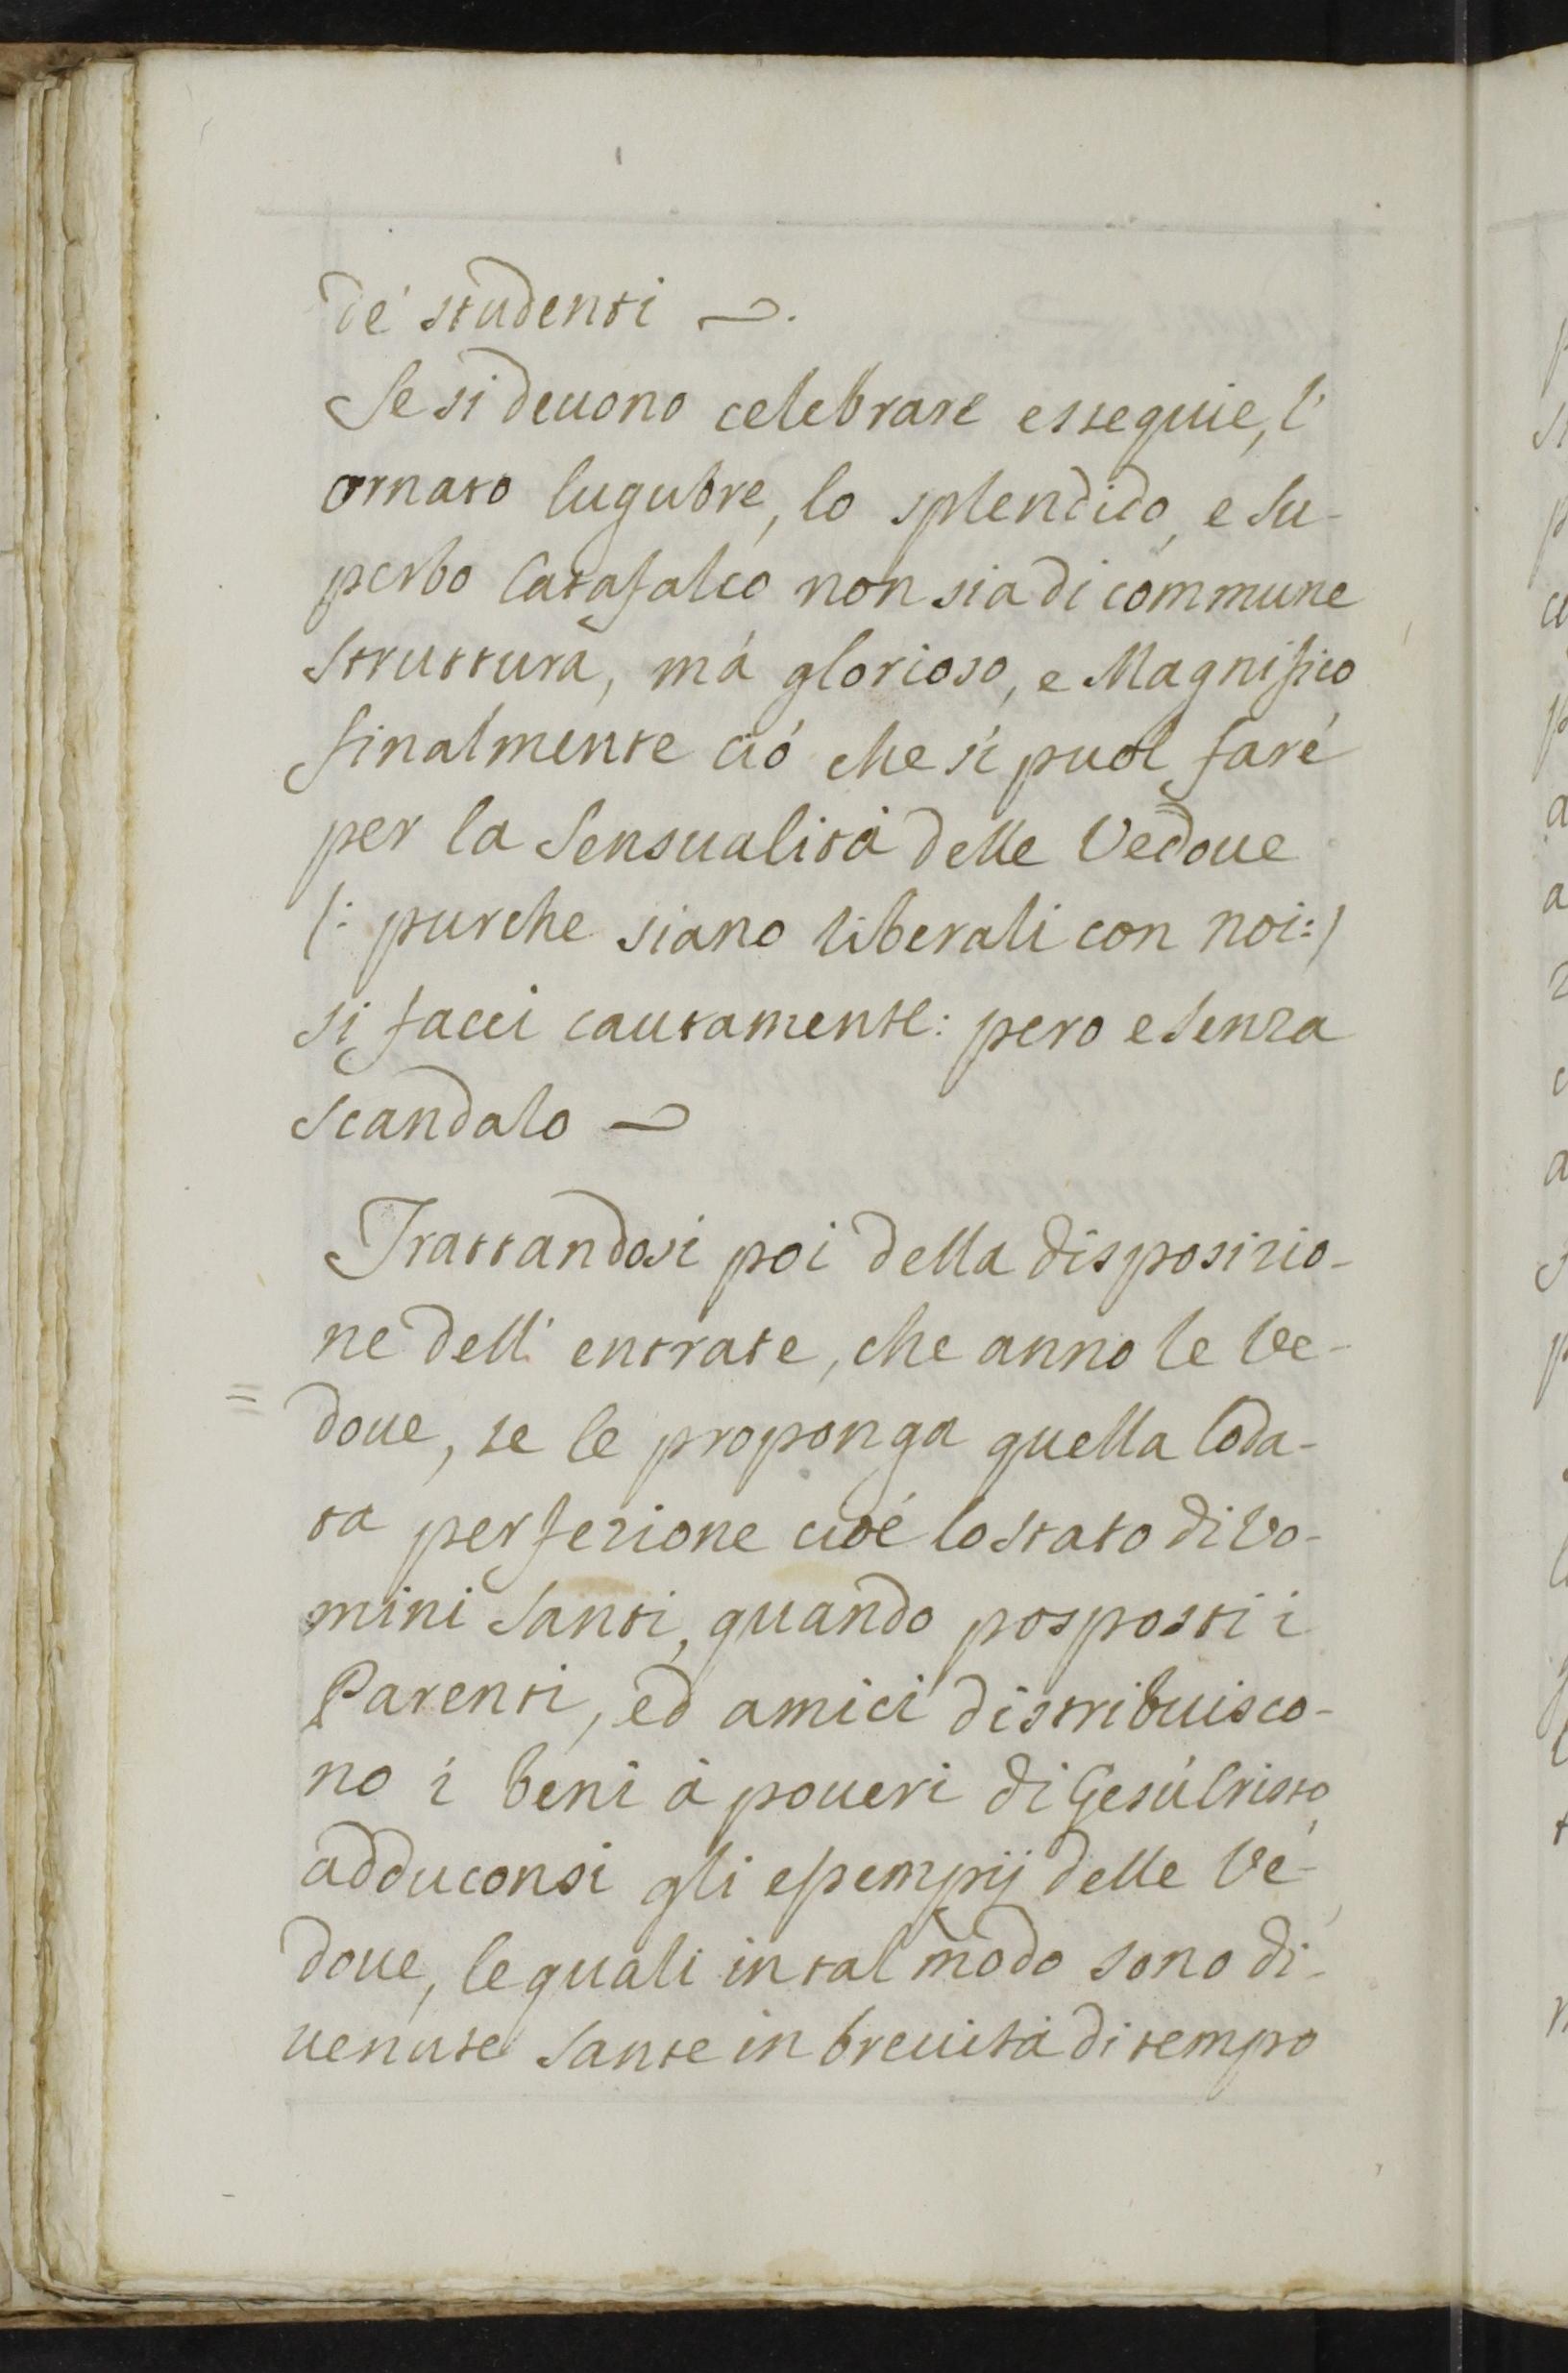 dé studenti ~.
Se si deuono celebrare essequie, l'
ornato lugubre, lo splendido, e su-
perbo Catafalco non sia di commune
struttura, má glorioso, e Magnifico
finalmente ció che si puol fare
per la sensualitá delle Vedoue
(: purche siano liberali con noi:)
si facci cautamente: pero e senza
scandalo ~
Trattandosi poi della disposizio-
ne dell' entrate, che anno le Ve-
= doue, se le proponga quella loda-
ta perfezione cioé lo stato di Vo-
mini Santi, quando posposti i
Parenti, ed amici distribuisco-
no i beni á poueri di Gesú Cristo,
adduconsi gli essempij delle Ve-
doue, le quali in tal modo sono di-
uenute Sante in breuitá di tempo